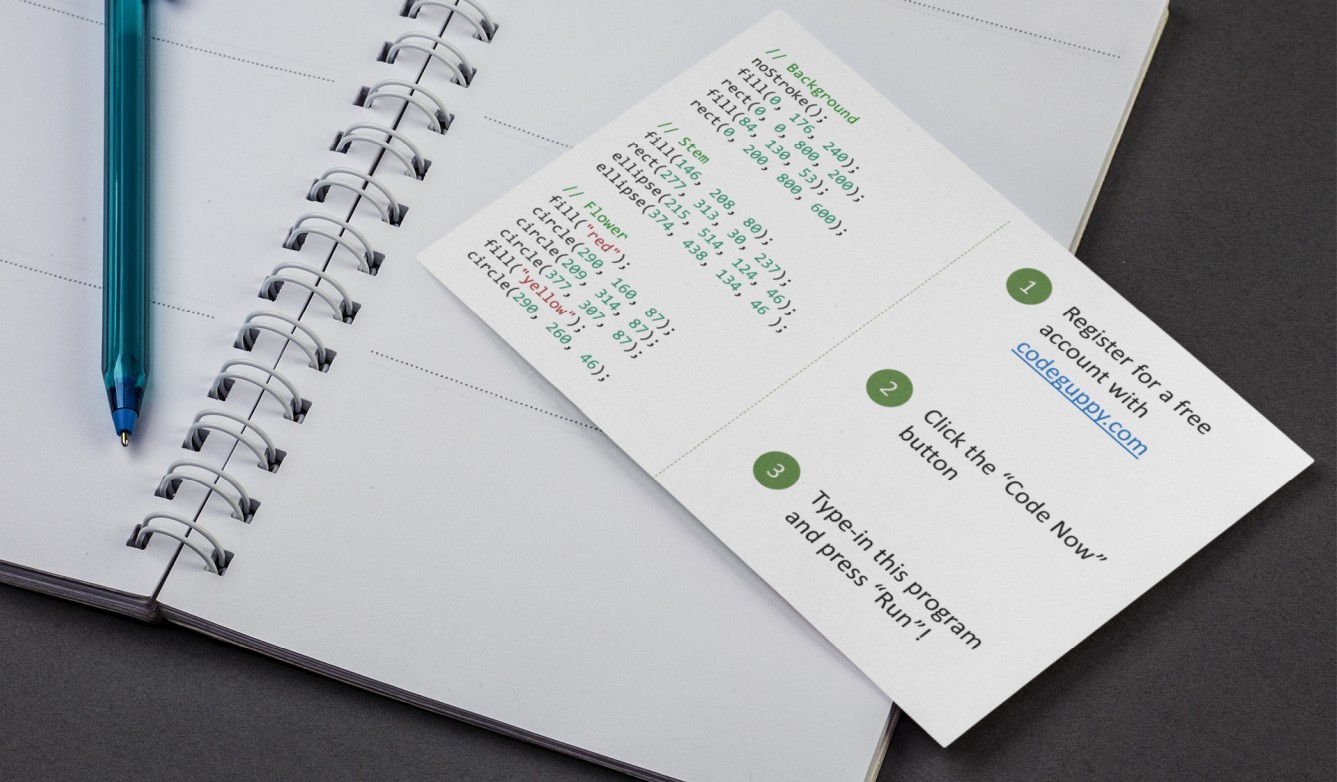 // Background
noStroke();
fill(0, 176, 240);
rect(0, 0, 800, 200);
fill(84, 130, 53);
rect(0, 200, 800, 600);
// Stem
fill(146, 208, 80);
rect(277, 313, 30, 237);
ellipse(215, 514, 124, 46);
ellipse(374, 438, 134, 46 );
// Flower
fill("red");
circle(290, 160, 87);
circle(209, 314, 87);
circle(377, 307, 87);
fill("yellow");
circle(290, 260, 46);
1 Register for a free
account with
codeguppy.com
2 Click the “Code Now”
button
3 Type-in this program
and press “Run”!